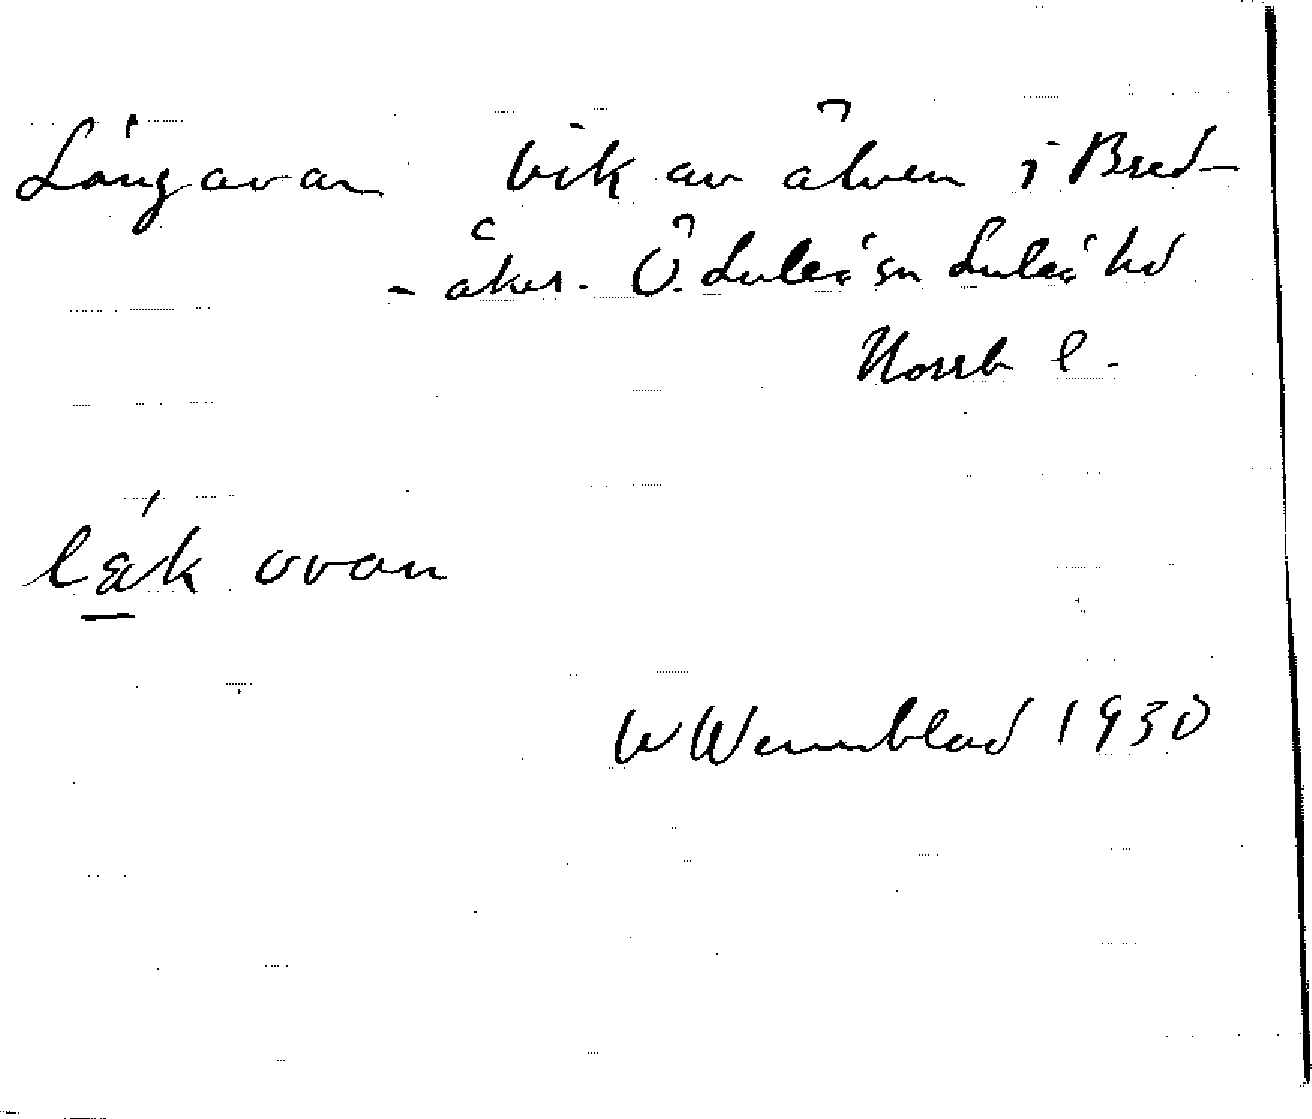 Långavan vik av älven i Bred-
- åker. Ö. Luleå sn Luleå hd
Norrb l.
læk ovan
W Wennblad 1930